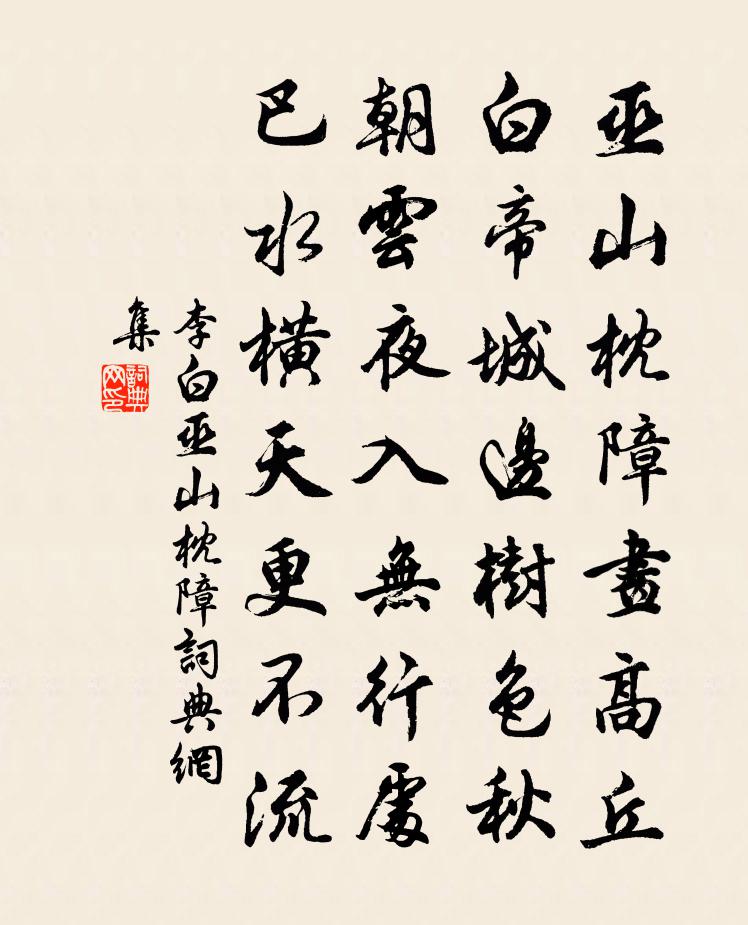 巫山枕障畫高丘
白帝城邊樹色秋
朝雲夜入無行處
巴水橫天更不流
李白巫山枕障詞典網
集
詞典
网印